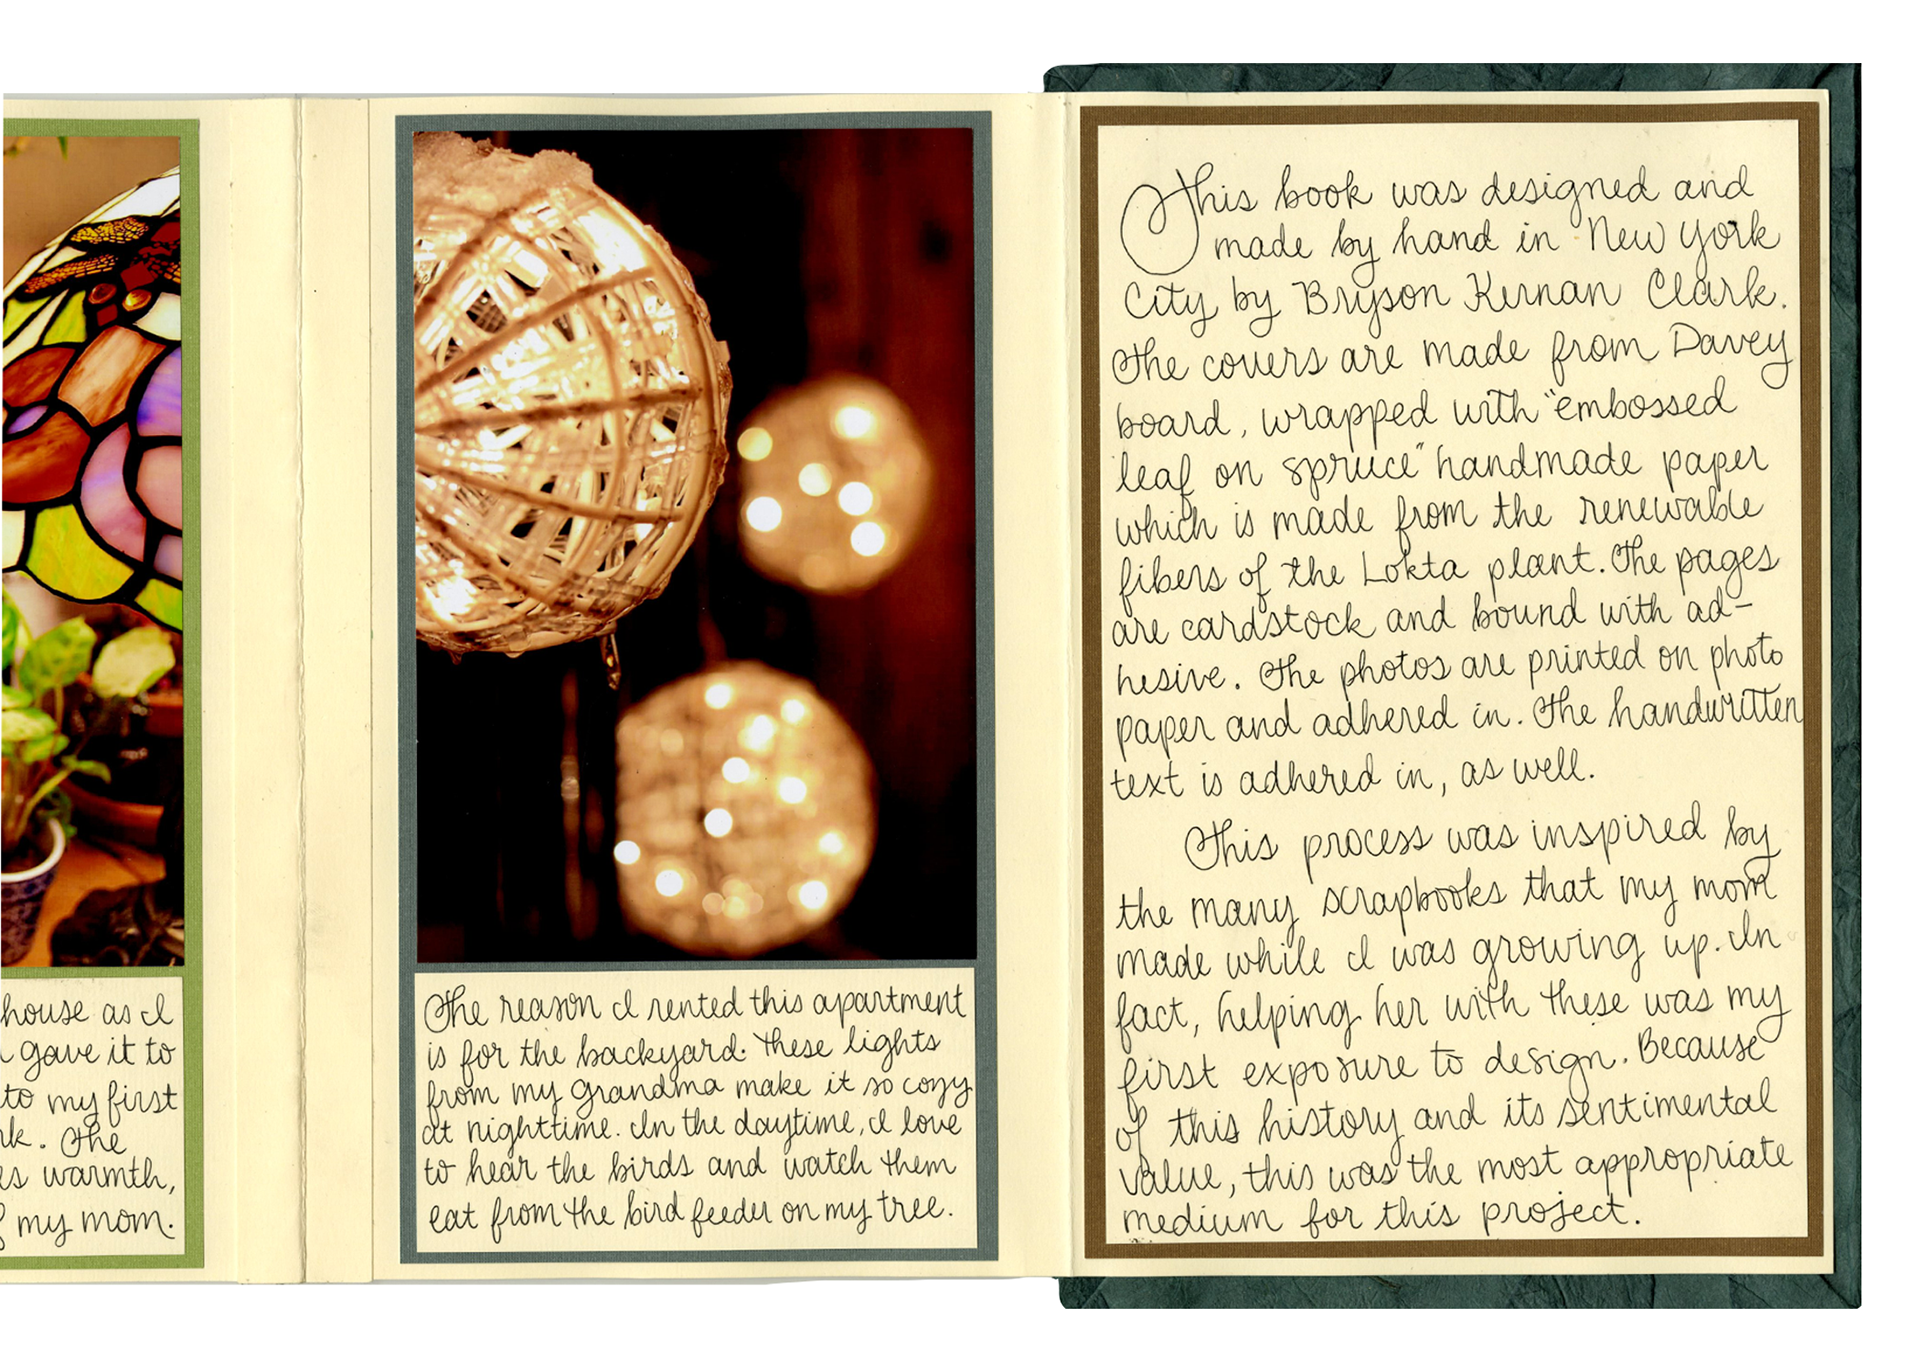 house as I
gave it to
to my first
rk. The
es warmth,
f my mom.
The reason I rented this apartment
is for the backyard. These lights
from my grandma make it so cozy
at nighttime. In the daytime, I love
to hear the birds and watch them
eat from the bird feeder on my tree.
This book was designed and
made by hand in New York
City by Bryson Kernan Clark.
The covers are made from Davey
board, wrapped with "embossed
leaf on spruce" handmade paper
which is made from the renewable
fibers of the Lokta plant. The pages
are cardstock and bound with ad-
hesive. The photos are printed on photo
paper and adhered in. The handwritten
text is adhered in, as well.
This process was inspired by
the many scrapbooks that my mom
made while I was growing up. In
fact, helping her with these was my
first exposure to design. Because
of this history and its sentimental
value, this was the most appropriate
medium for this project.